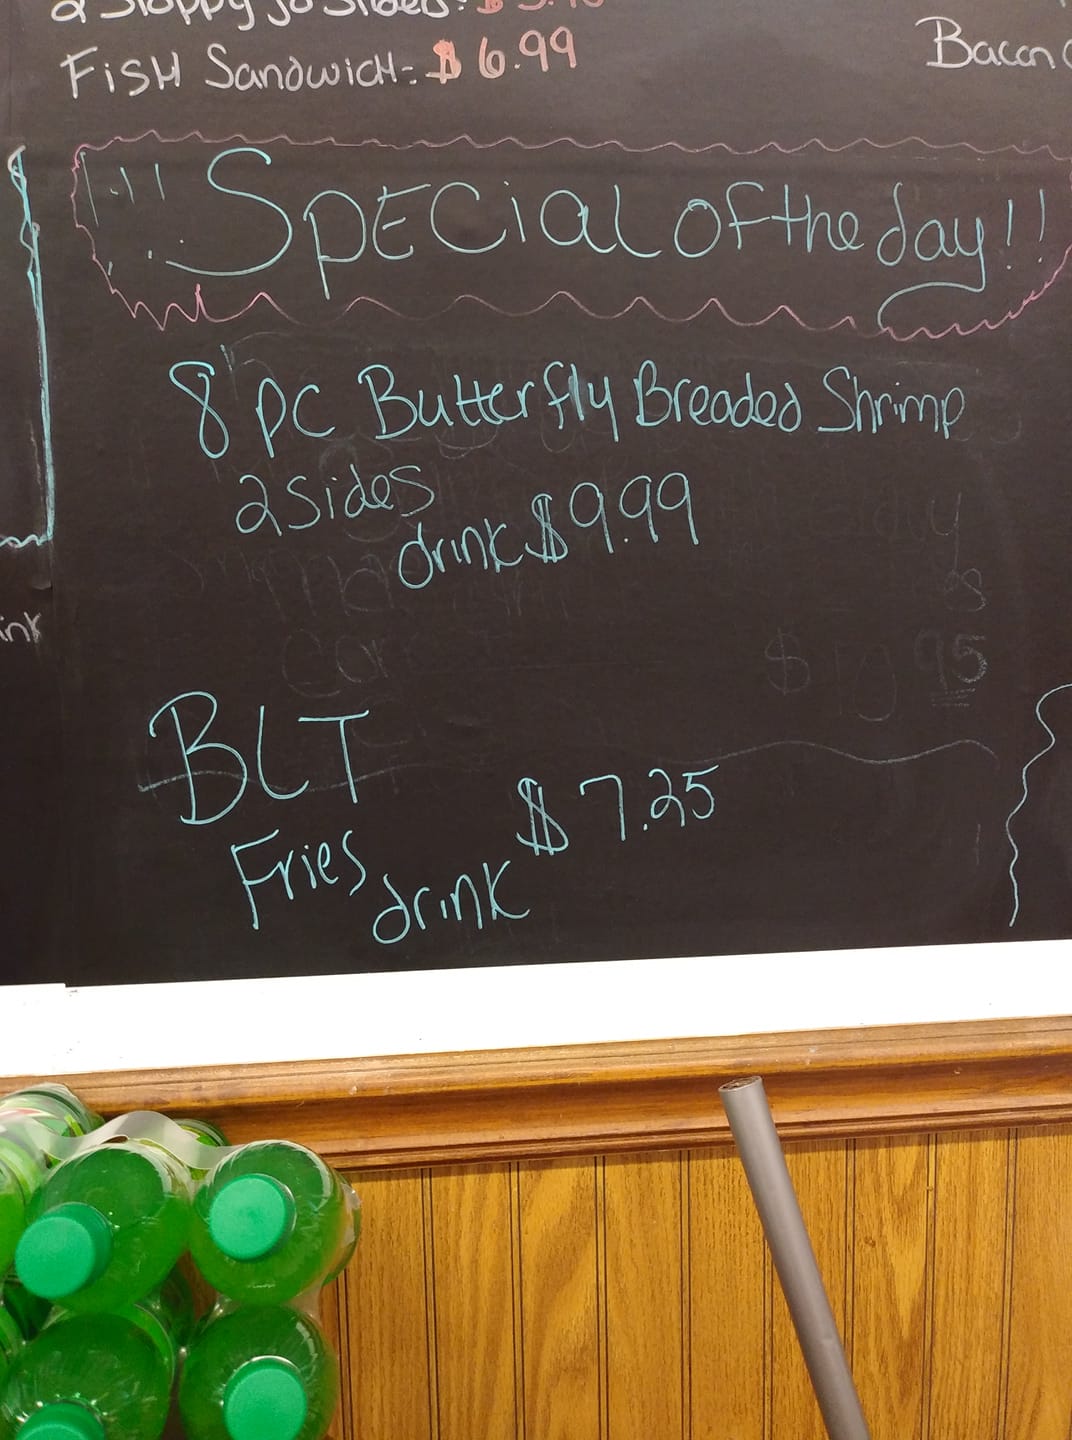 2 Sloppy Jo Sliders:
Fish Sandwich: $6.99
Bacon
Special of the day!!
8 pc Butterfly Breaded Shrimp
2 sides
drink $9.99
ink
$10.95
BLT
$7.25
Fries
drink